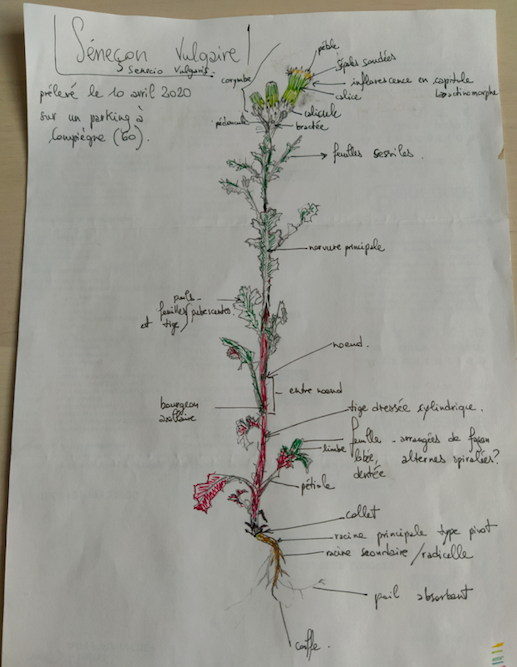 Séneçon Vulgaire
Senecio Vulgaris.
prélevé le 10 avril 2020
sur un parking à
Compiègne (60).
corymbe
pétale
sépales soudées
inflorescence en capitule
actinomorphe
calice
calicule
pédoncule
bractée
feuilles sessiles.
nervure principale
poils
feuilles pubescentes
et tige
noeud.
entre noeud
bourgeon
axillaire
tige dressée cylindrique.
feuille - arrangées de façon
limbe
lobée, alternes spiralées?
dentée
pétiole
collet
racine principale type pivot
racine secondaire / radicelle
poil absorbant
coiffe.